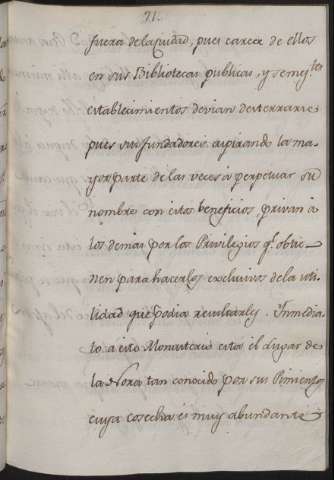 71.
fuera de la Ciudad, pues carece de ellos
en sus Bibliotecas publicas, y semejtes
establecimientos devian desterrarse
pues sus fundadores aspirando la ma-
yor parte de las veces à perpetuar su
nombre con estos beneficios privan à
los demas por los Privilegios qe obtie-
nen para hacerlos exclusivos de la uti-
lidad que podia resultarles. Inmedia-
to a este Monasterio esta el Lugar de
la Nora tan conocido por sus Pimientos
cuya cosecha es muy abundante